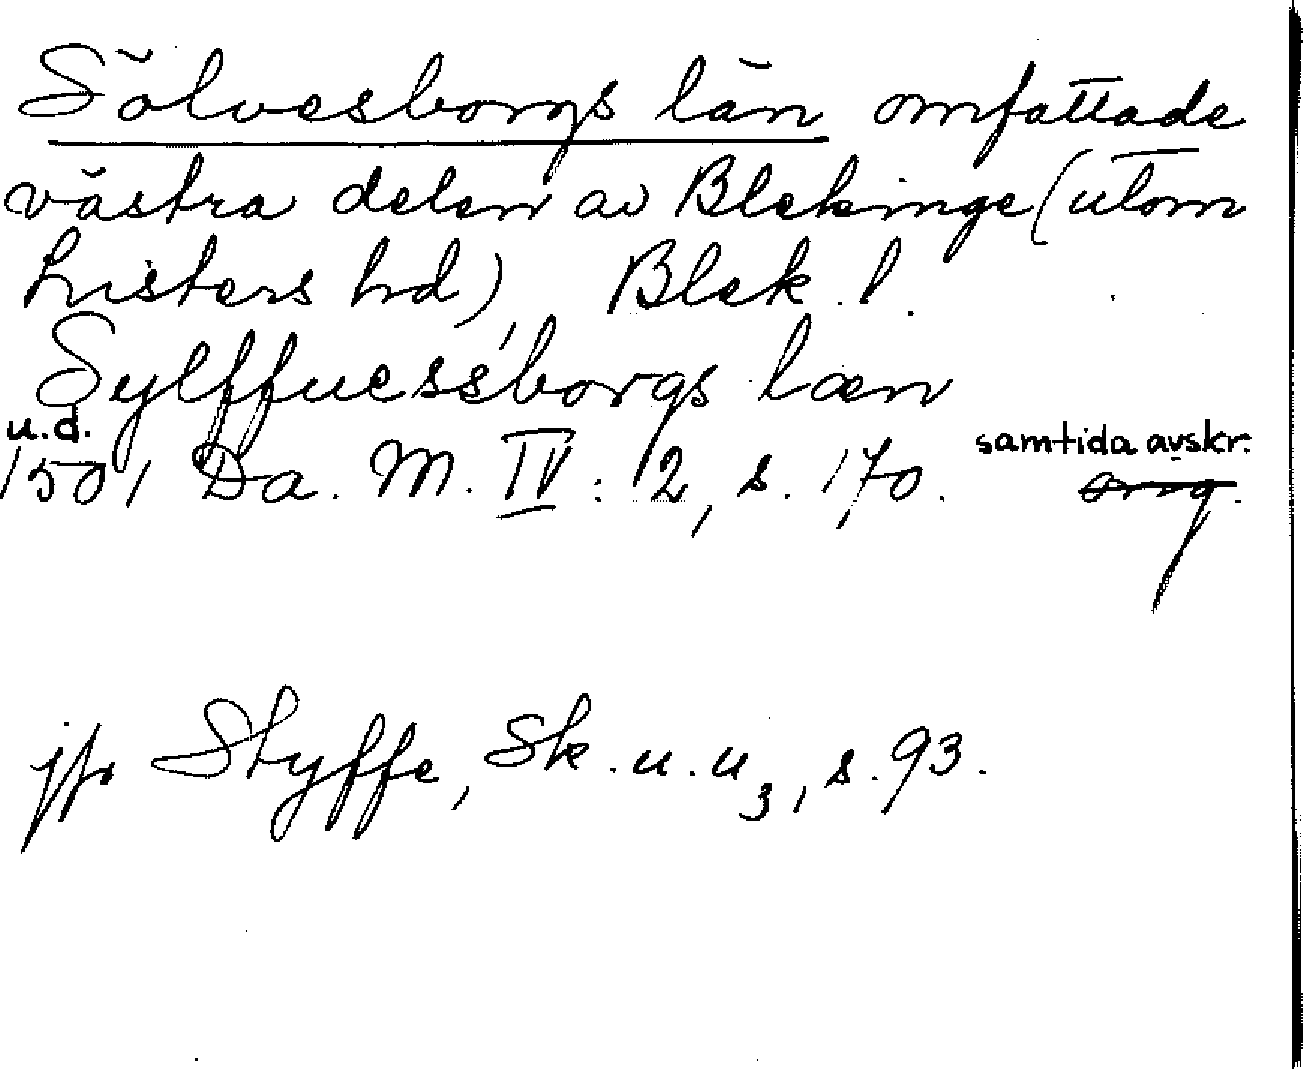 Sölvesborgs län omfattade
västra delen av Blekinge (utom
Listers hd), Blek. l.
Sylffuessborgs læn
u.d.
1501 Da. M. IV: 2, s. 170. samtida avskr.
orig.
jfr Styffe, Sk. u. u₃, s. 93.